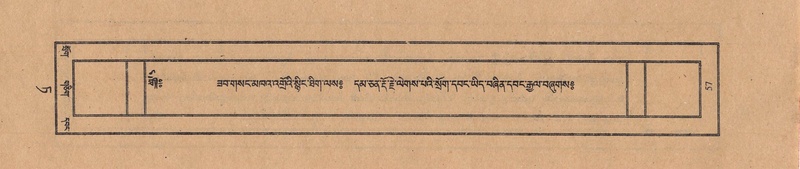 ཟབ་གསང་མཁའ་འགྲོའི་སྙིང་ཐིག་ལས༔ དམ་ཅན་རྡོ་རྗེ་ལེགས་པའི་སྲོག་དབང་ཡིད་བཞིན་དབང་རྒྱལ་བཞུགས༔
57